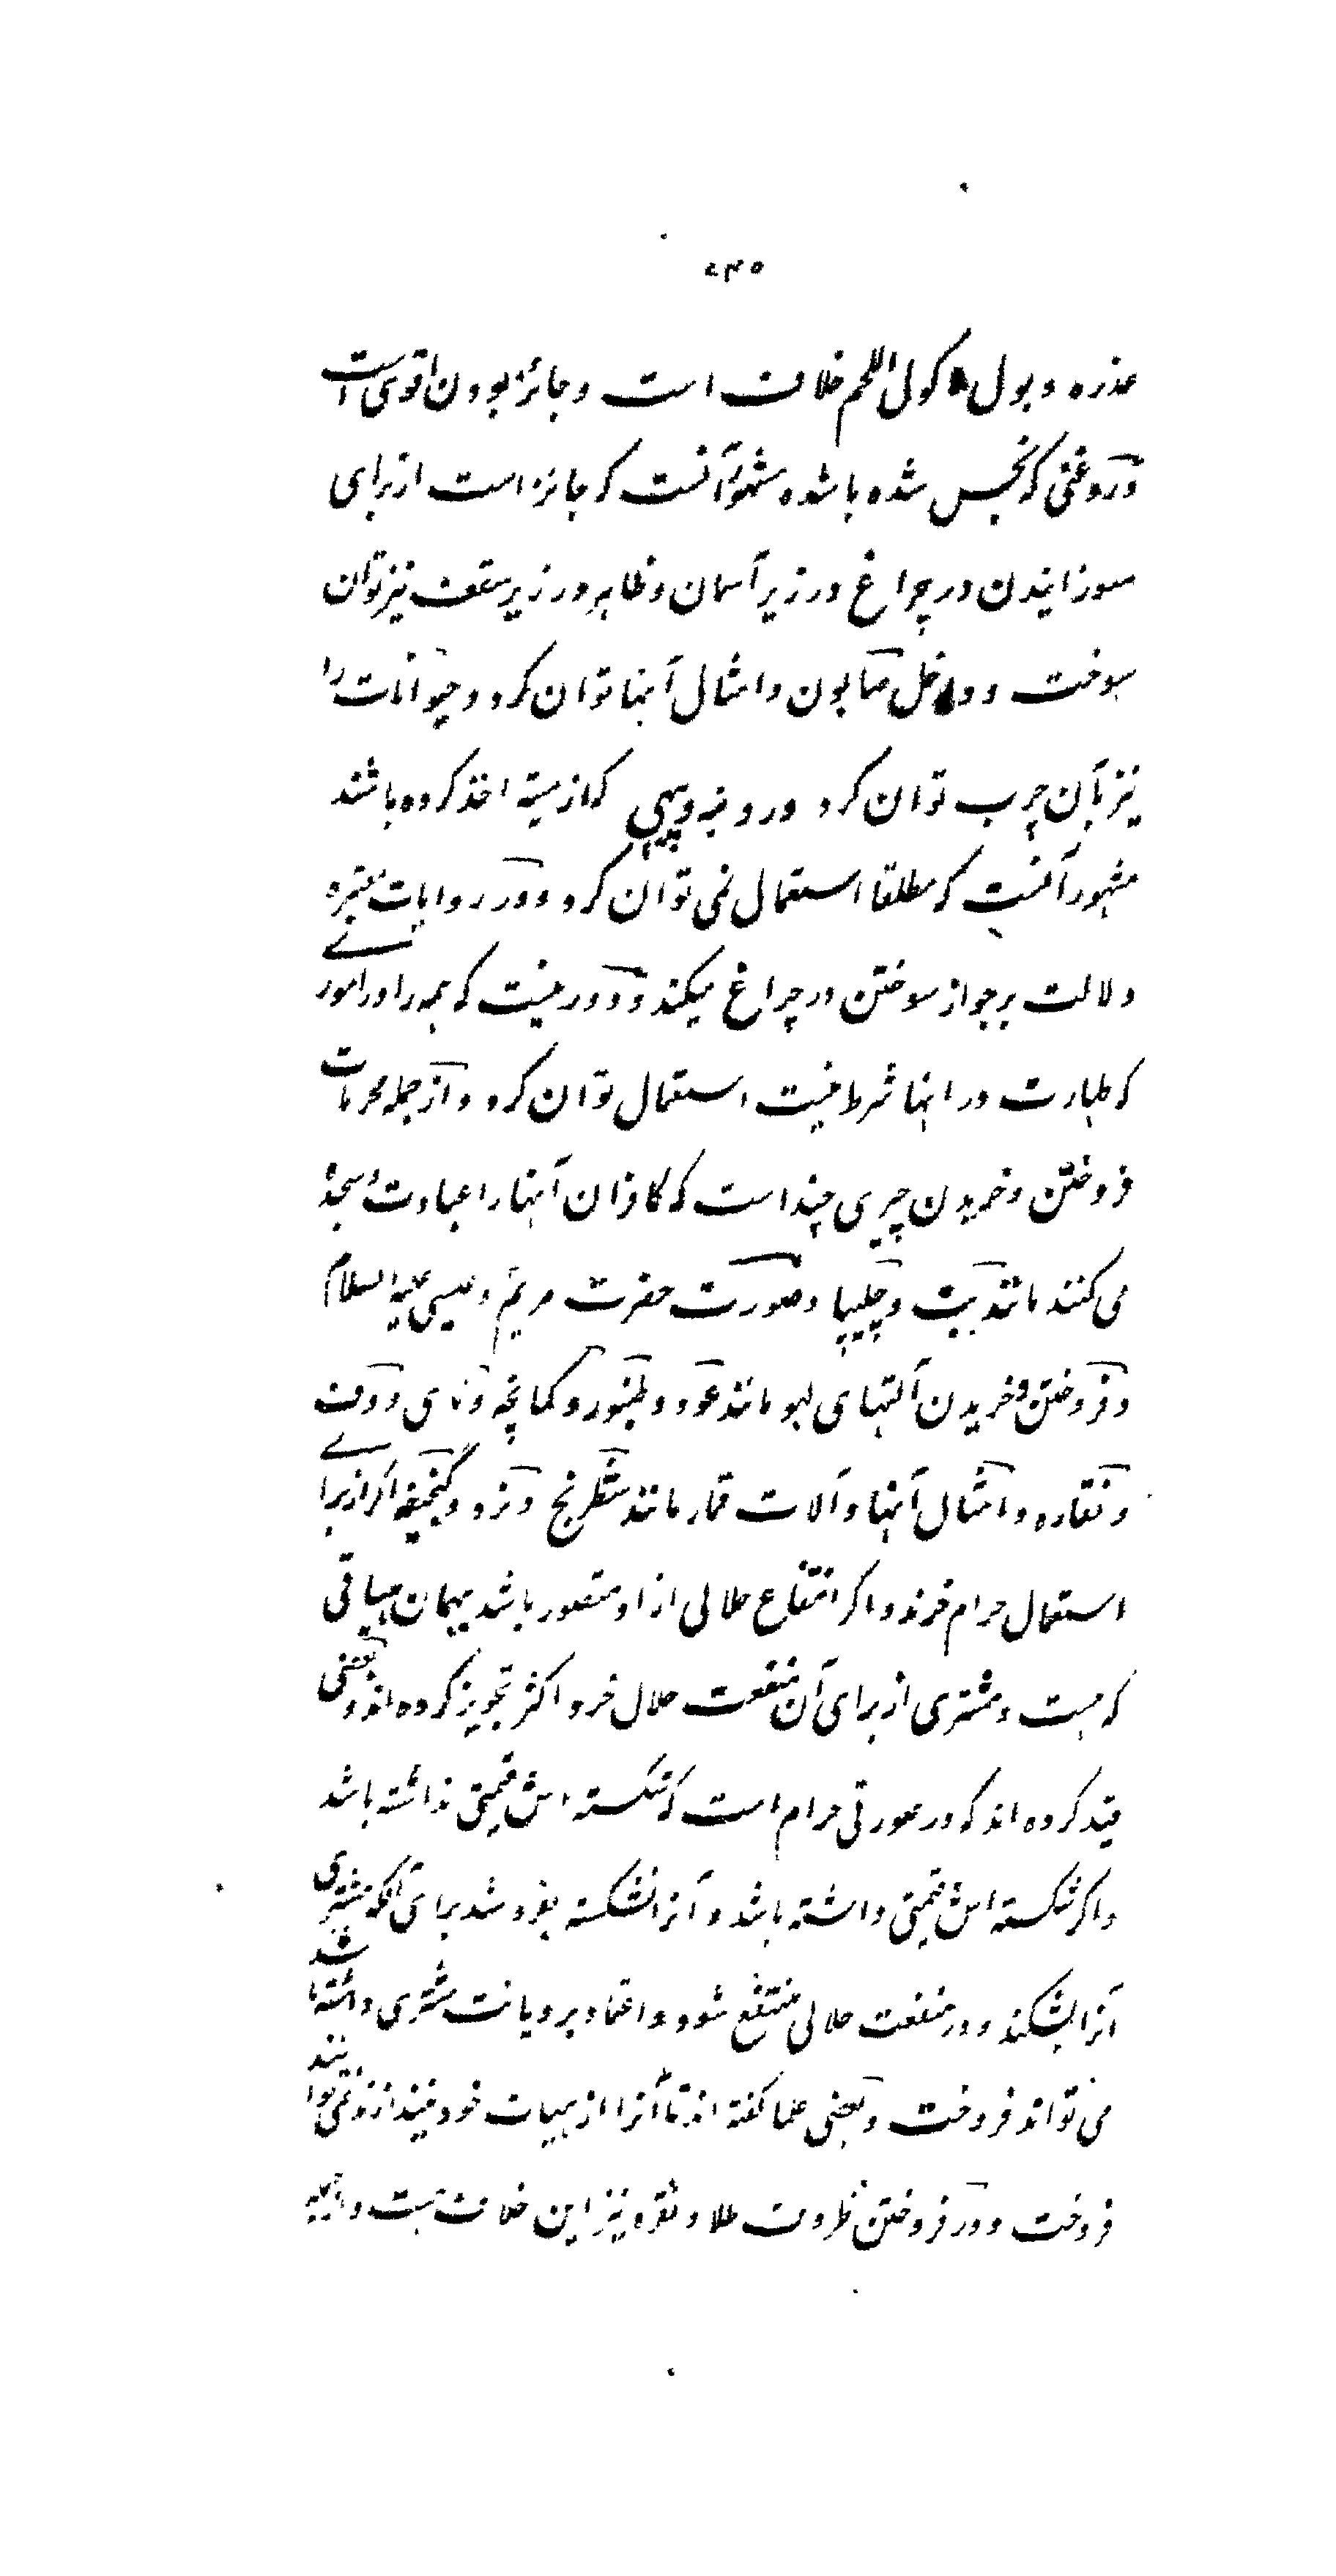 ۲۳۵
عذره و بول ماکول اللحم خلاف است و جائز بودن اقوی است
و روغنی که نجس شده باشد مشهور آنست که جائز است از برای
سوزانیدن در چراغ در زیر آسمان و ظاهر در زیر سقف نیز توان
سوخت و داخل صابون و امثال آنها توان کرد و حیوانات را
نیز بآن چرب توان کرد و روغن و پیهی که از میته اخذ کرده باشند
مشهور آنست که مطلقا استعمال نمی توان کرد و در روایات معتبره
دلالت بر جواز سوختن در چراغ میکند و دور نیست که همه را در امور
که طهارت در انها شرط نیست استعمال توان کرد و از جمله محرمات
فروختن و خریدن چیزی چند است که کافران آنها را عبادت و سجده
می کنند مانند بت و چلیپا و صورت حضرت مریم و عیسی علیه السلام
و فروختن و خریدن آلتهای لهو مانند عود و طنبور و کمانچه و نای و دف
و نقاره و امثال آنها و آلات قمار مانند شطرنج و نرد و گنجفه اگر از برای
استعمال حرام خرند و اگر انتفاع حلالی از او متصور باشد بهمان هیاتی
که هست و مشتری از برای آن منفعت حلال خرد اکثر تجویز کرده اند و بعضی
قید کرده اند که در صورتی حرام است که شکسته اش قیمتی نداشته باشد
و اگر شکسته اش قیمتی داشته باشد و آنرا نشکسته بفروشد برای آنکه مشتری
آنرا بشکند و در منفعت حلالی منتفع شود و اعتماد بر دیانت مشتری داشته باشد
می تواند فروخت و بعضی علما گفته اند تا آنرا از هیات خود نیندازند نمی توانند
فروخت و در فروختن ظروف طلا و نقره نیز این خلاف هست و